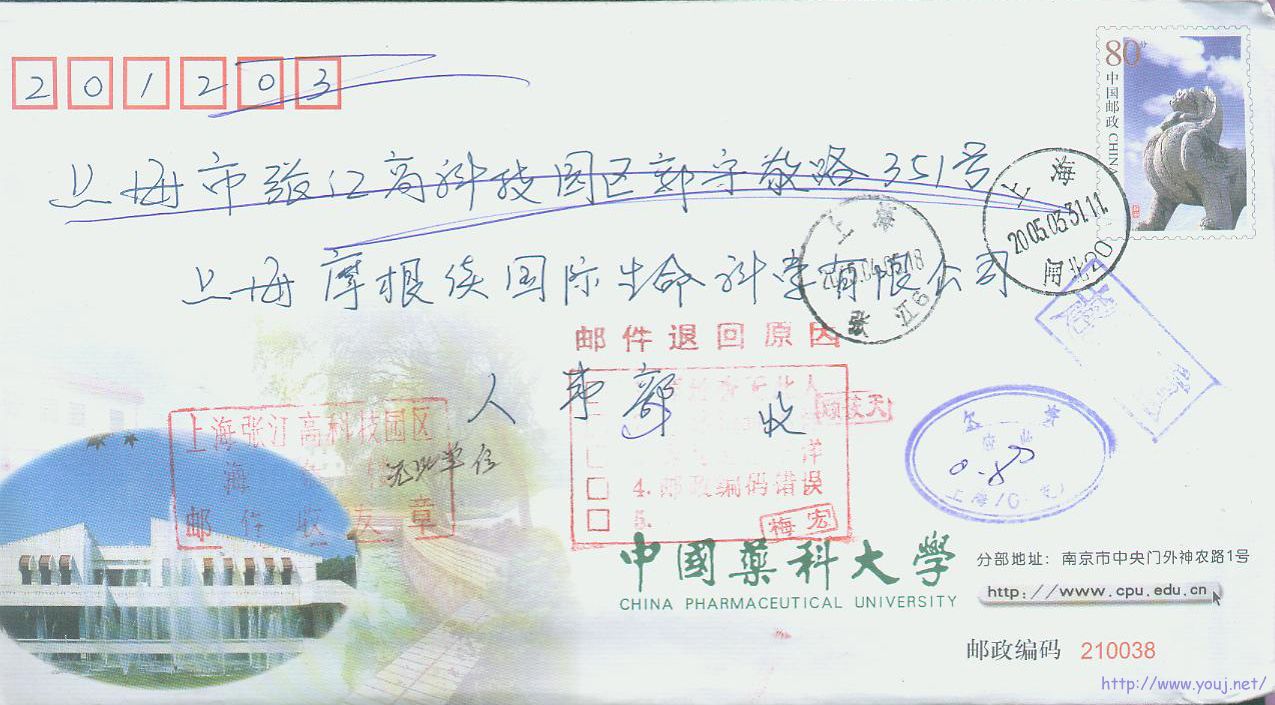 201203
80分
中国邮政 CHINA
上海市张江高科技园区郭守敬路351号
上海
2005.03.31.11
闸北20
上海
18
张江6
上海摩根谈国际生命科学有限公司
邮件退回原因
人事部 收
上海张江高科技园区
无此单位
4.邮政编码错误
5.
梅宏
章
中國藥科大學
CHINA PHARMACEUTICAL UNIVERSITY
分部地址：南京市中央门外神农路1号
http://www.cpu.edu.cn
邮政编码 210038
http://www.youj.net/